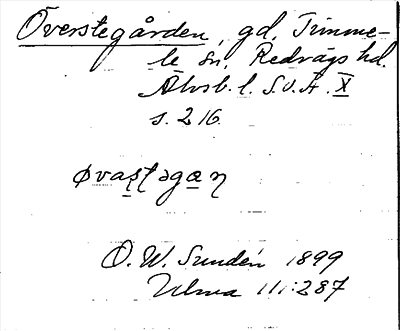 Överstegården, gd, Timme-
le sn, Redvägs hd.
Älvsb. l. S.O.Ä. X
s. 216.
øvaʂʈəgæɳ
O. W. Sundén 1899
Ulma 111:287